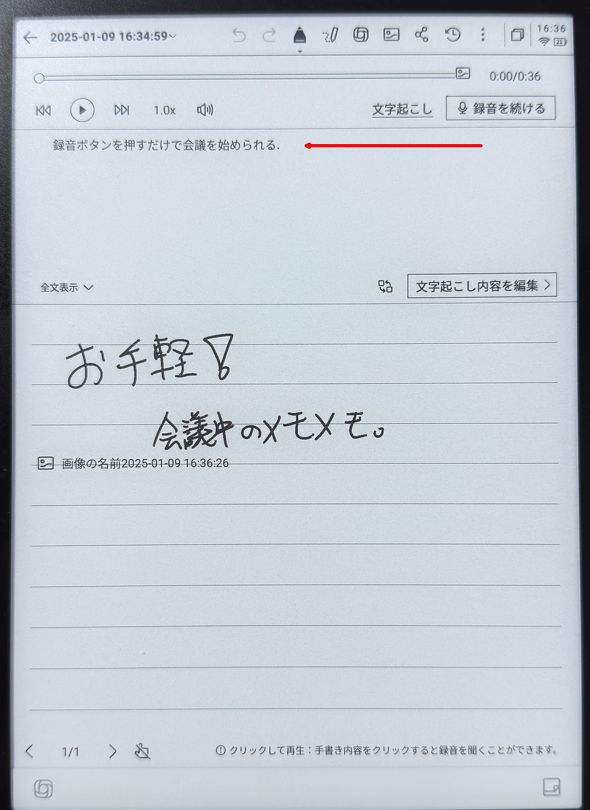 2025-01-09 16:34:59
16:36
21
0:00/0:36
1.0x
文字起こし
録音を続ける
録音ボタンを押すだけで会議を始められる.
全文表示
文字起こし内容を編集
お手軽!
会議中のメモメモ。
画像の名前2025-01-09 16:36:26
1/1
クリックして再生：手書き内容をクリックすると録音を聞くことができます。